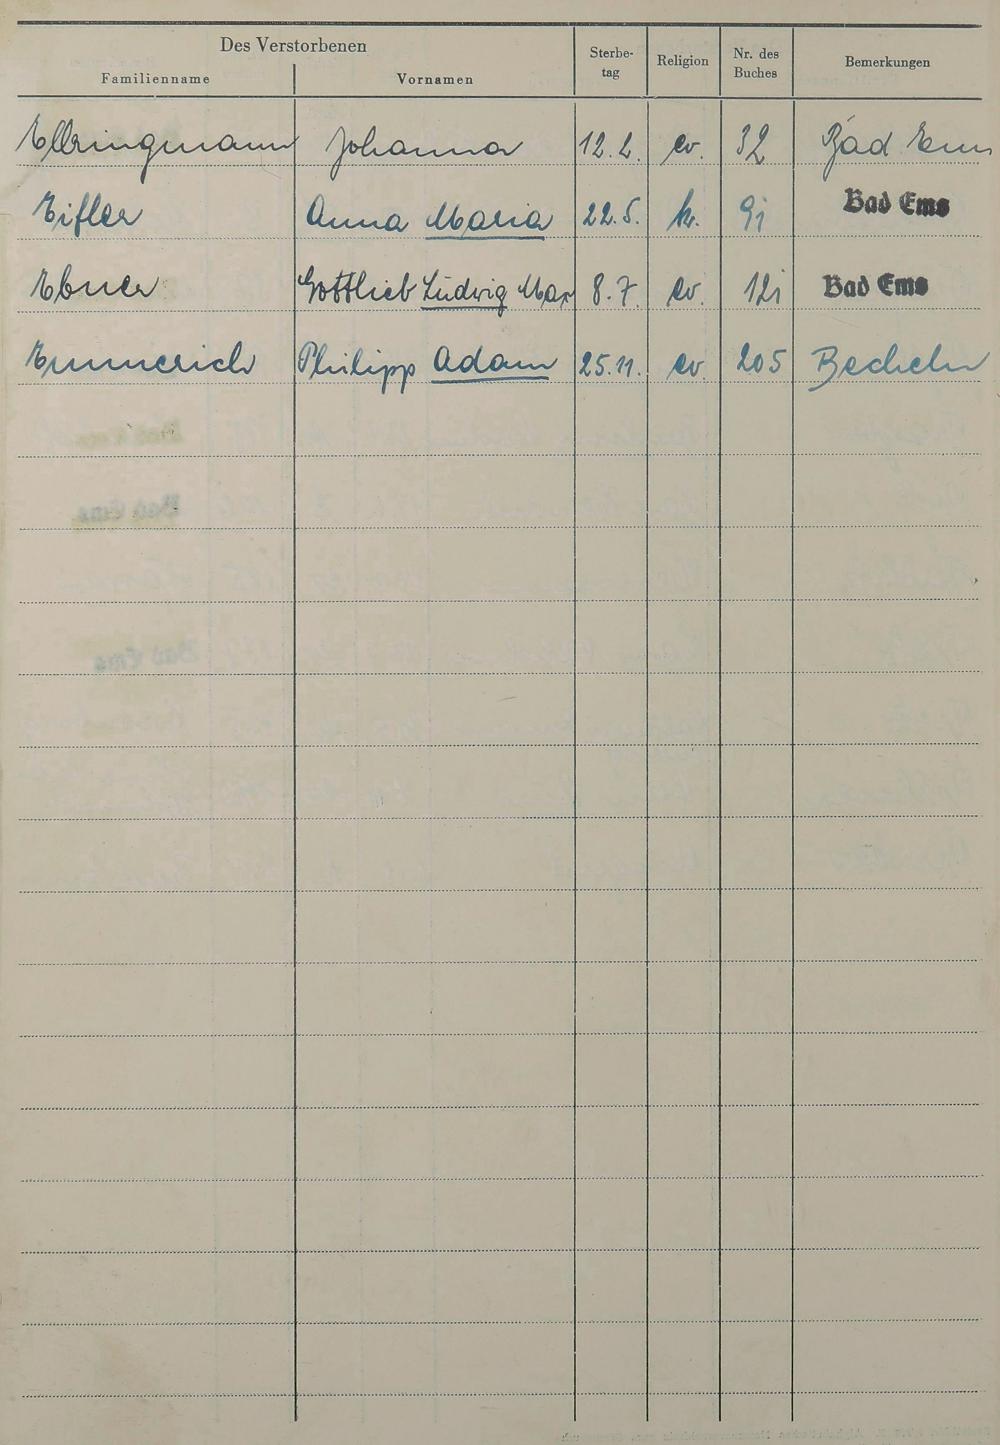 Des Verstorbenen
Familienname Vornamen Sterbe-tag Religion Nr. des Buches Bemerkungen
Ellringmann Johanna 12.2. ev. 32 Bad Ems
Eifler Anna Maria 22.5. k. 91 Bad Ems
Ebner Gottlieb Ludwig Max 8.7. ev. 121 Bad Ems
Emmerich Philipp Adam 25.11. ev. 205 Becheln